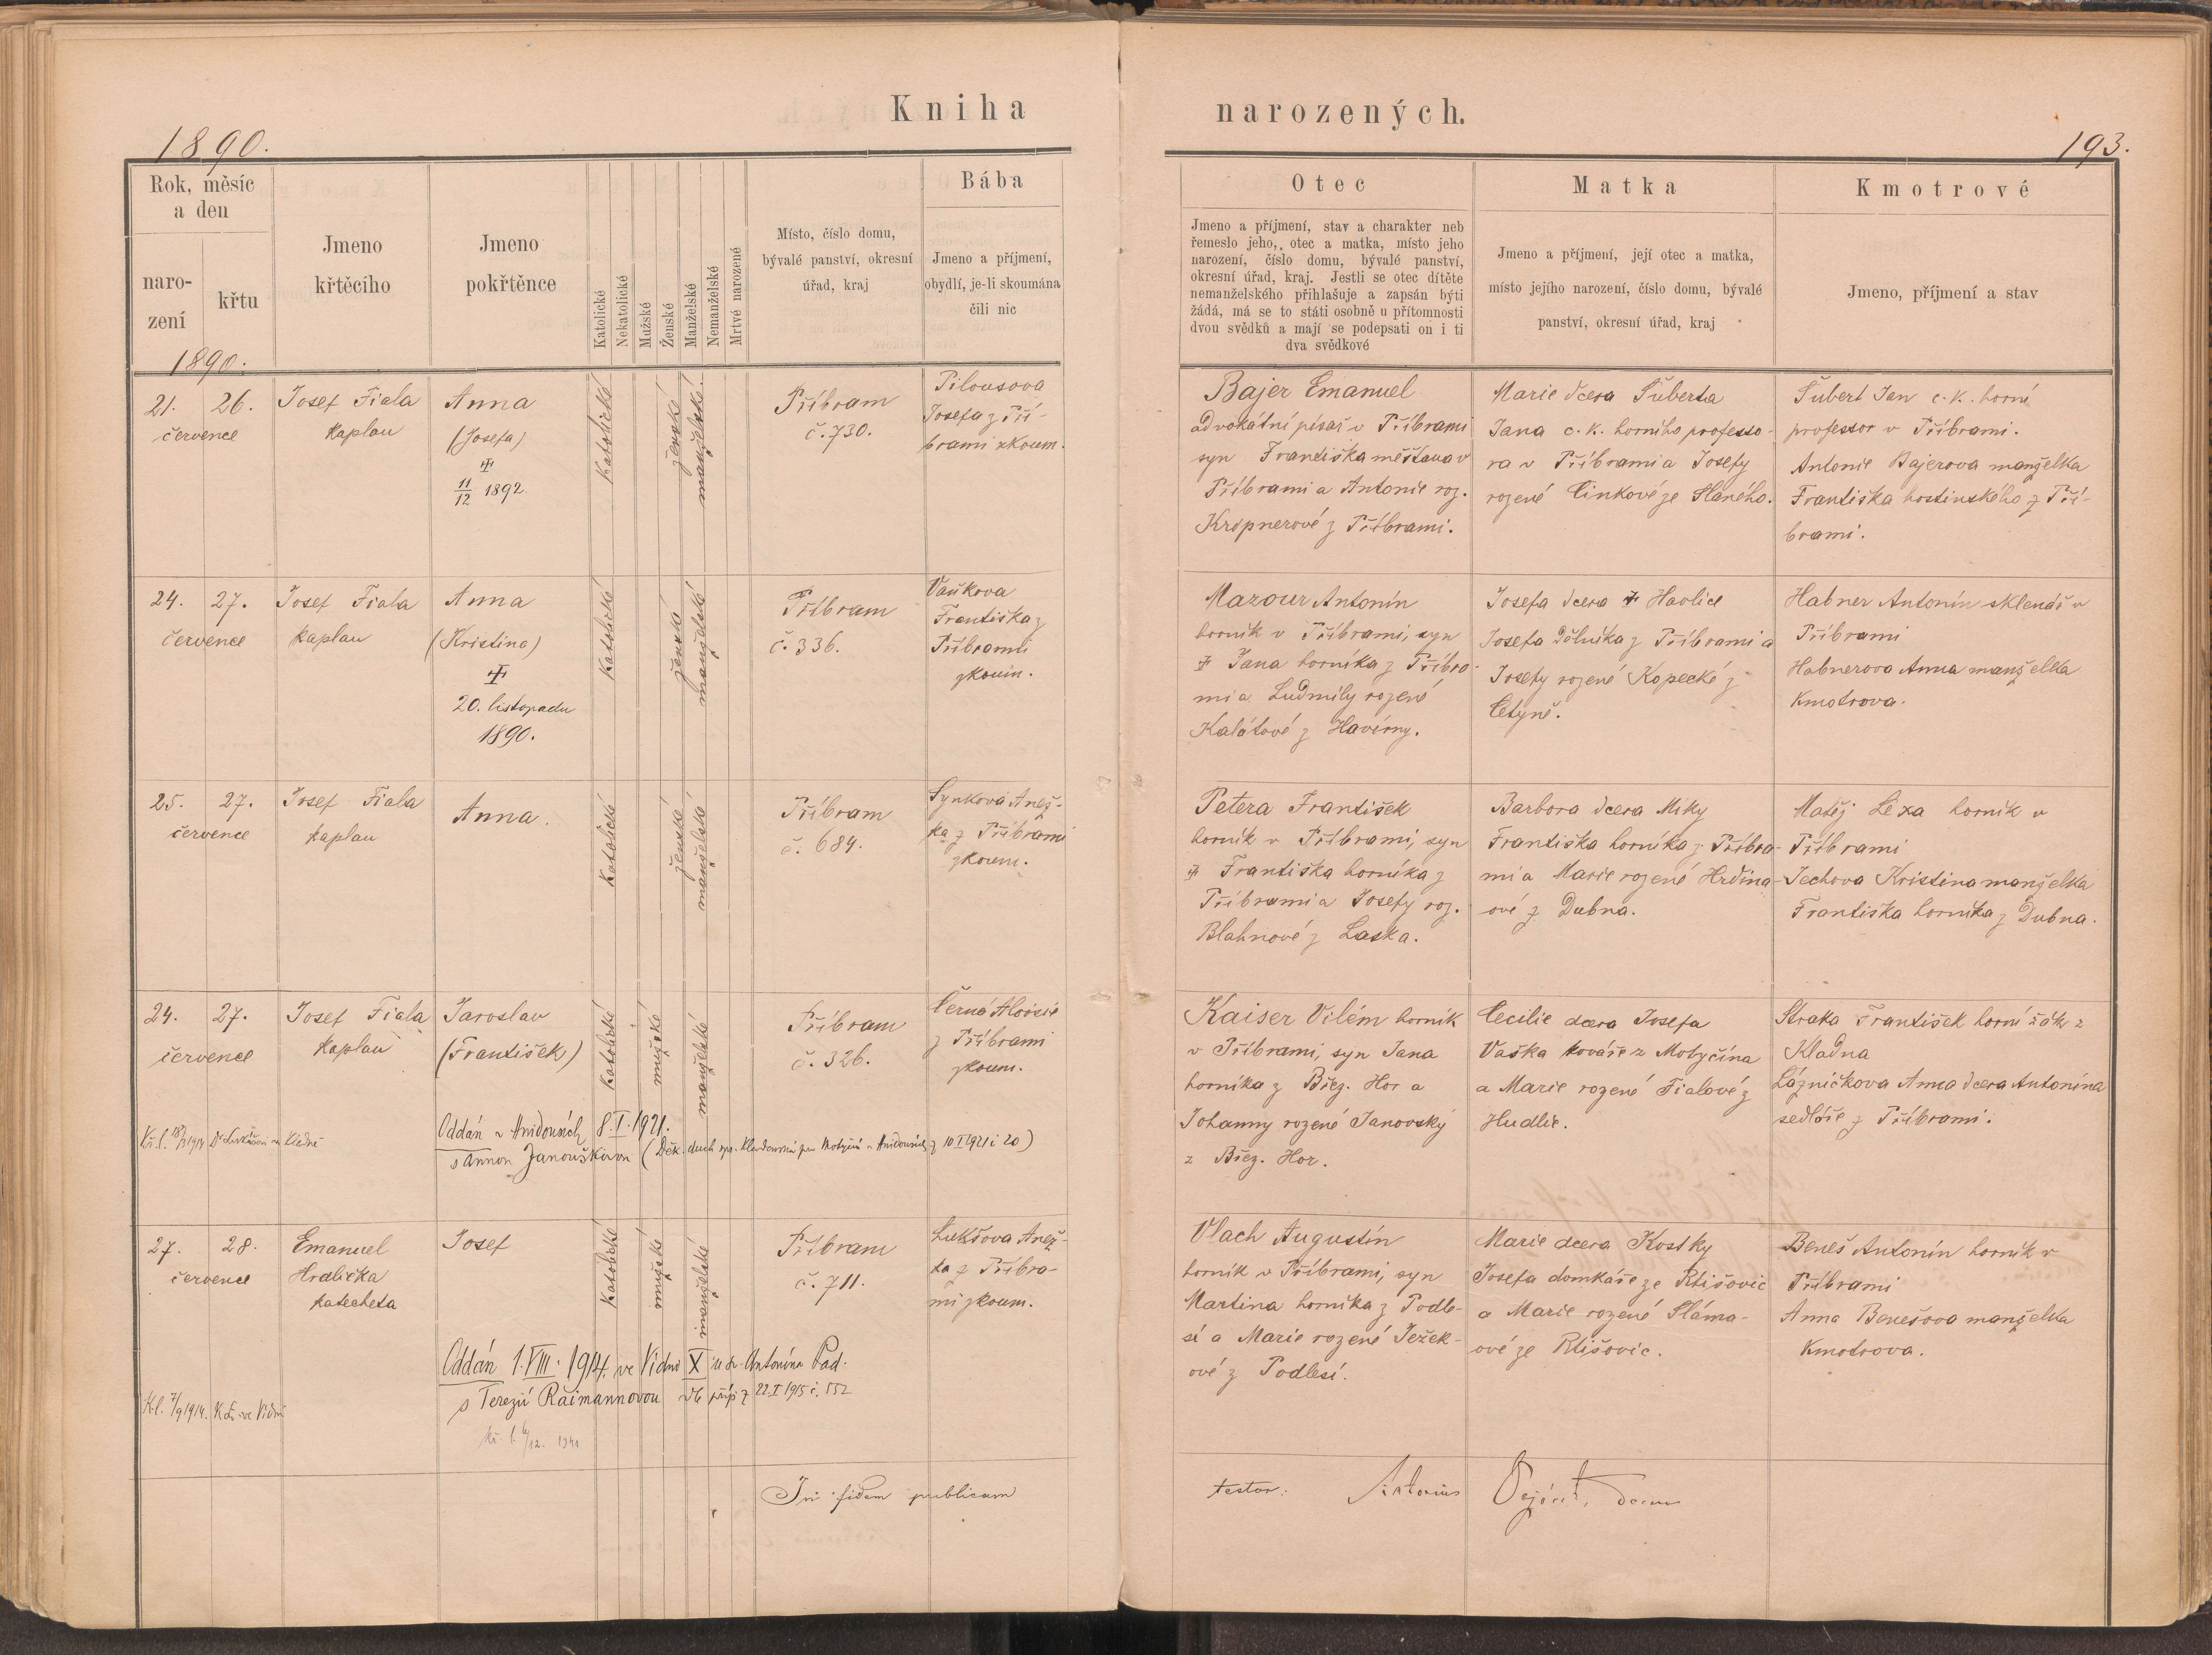 Kniha narozených.
1890.
193.
Rok, měsíc
a den
naro-
zení
křtu
Jmeno
křtěcího
Jmeno
pokřtěnce
Katolické
Nekatolické
Mužské
Ženské
Manželské
Nemanželské
Mrtvé narozené
Místo, číslo domu,
bývalé panství, okresní
úřad, kraj
Bába
Jmeno a příjmení,
obydlí, je-li skoumána
čili nic
Otec
Jmeno a příjmení, stav a charakter neb
řemeslo jeho, otec a matka, místo jeho
narození, číslo domu, bývalé panství,
okresní úřad, kraj. Jestli se otec dítěte
nemanželského přihlašuje a zapsán býti
žádá, má se to státi osobně u přítomnosti
dvou svědků a mají se podepsati on i ti
dva svědkové
Matka
Jmeno a příjmení, její otec a matka,
místo jejího narození, číslo domu, bývalé
panství, okresní úřad, kraj
Kmotrové
Jmeno, příjmení a stav
1890.
21. 26.
července
Josef Fiala
kaplan
Anna
(Josefa)
11/12 1892.
katolické
ženské
manželské
Příbram
č. 730.
Pilousova
Josefa z Pří-
brami zkoum.
Bajer Emanuel
advokátní písař v Příbrami
syn Františka měšťana v
Příbrami a Antonie roz.
Kropnerové z Příbrami.
Marie dcera Šuberta
Jana c. k. horního professo-
ra v Příbrami a Josefy
rozené Cinkové ze Slaného.
Šubert Jan c. k. horní
professor v Příbrami.
Antonie Bajerova manželka
Františka hostinského z Pří-
brami.
24. 27.
července
Josef Fiala
kaplan
Anna
(Kristina)
20. listopadu
1890.
katolické
ženské
manželské
Příbram
č. 336.
Vaňkova
Františka z
Příbrami
zkoum.
Mazour Antonín
horník v Příbrami, syn
† Jana horníka z Příbra-
mi a Ludmily rozené
Kalátové z Havírny.
Josefa dcera † Havlice
Josefa dělníka z Příbrami a
Josefy rozené Kopecké z
Cetyně.
Habner Antonín sklenář v
Příbrami
Habnerova Anna manželka
kmotrova.
25. 27.
července
Josef Fiala
kaplan
Anna.
katolické
ženské
manželské
Příbram
č. 684.
Synkova Anež-
ka z Příbrami
zkoum.
Petera František
horník v Příbrami, syn
† Františka horníka z
Příbrami a Josefy roz.
Blahnové z Laska.
Barbora dcera Miky
Františka horníka z Příbra-
mi a Marie rozené Hrdina-
ové z Dubna.
Matěj Lexa horník v
Příbrami
Jechova Kristina manželka
Františka horníka z Dubna.
24. 27.
července
Josef Fiala
kaplan
Jaroslav
(František)
katolické
mužské
manželské
Příbram
č. 326.
Černá Aloisie
z Příbrami
zkoum.
Kaiser Vilém horník
v Příbrami, syn Jana
horníka z Břez. Hor a
Johanny rozené Janovský
z Břez. Hor.
Cecilie dcera Josefa
Vaška kováře z Motyčína
a Marie rozené Fialové z
Hudlic.
Straka František horní žák z
Kladna
Lázničkova Anna dcera Antonína
sedláře z Příbrami.
Oddán v Hnidousích 8.I.1921.
s Annou Janouškovou
27. 28.
července
Emanuel
Hrdlička
katecheta
Josef
katolické
mužské
manželské
Příbram
č. 711.
Lukšova Anež-
ka z Příbra-
mi zkoum.
Vlach Augustin
horník v Příbrami, syn
Martina horníka z Podle-
sí a Marie rozené Ježek-
ové z Podlesí.
Marie dcera Kostky
Josefa domkáře ze Rtišovic
a Marie rozené Sláma-
ové ze Rtišovic.
Beneš Antonín horník v
Příbrami
Anna Benešova manželka
kmotrova.
Oddán 1.VIII.1914. ve Vídni X u sv. Antonína Pad.
s Terezií Raimannovou
22.I 1915 č. 152
K.l. 7/9 1914.
In fidem publicam
testor: Antonius